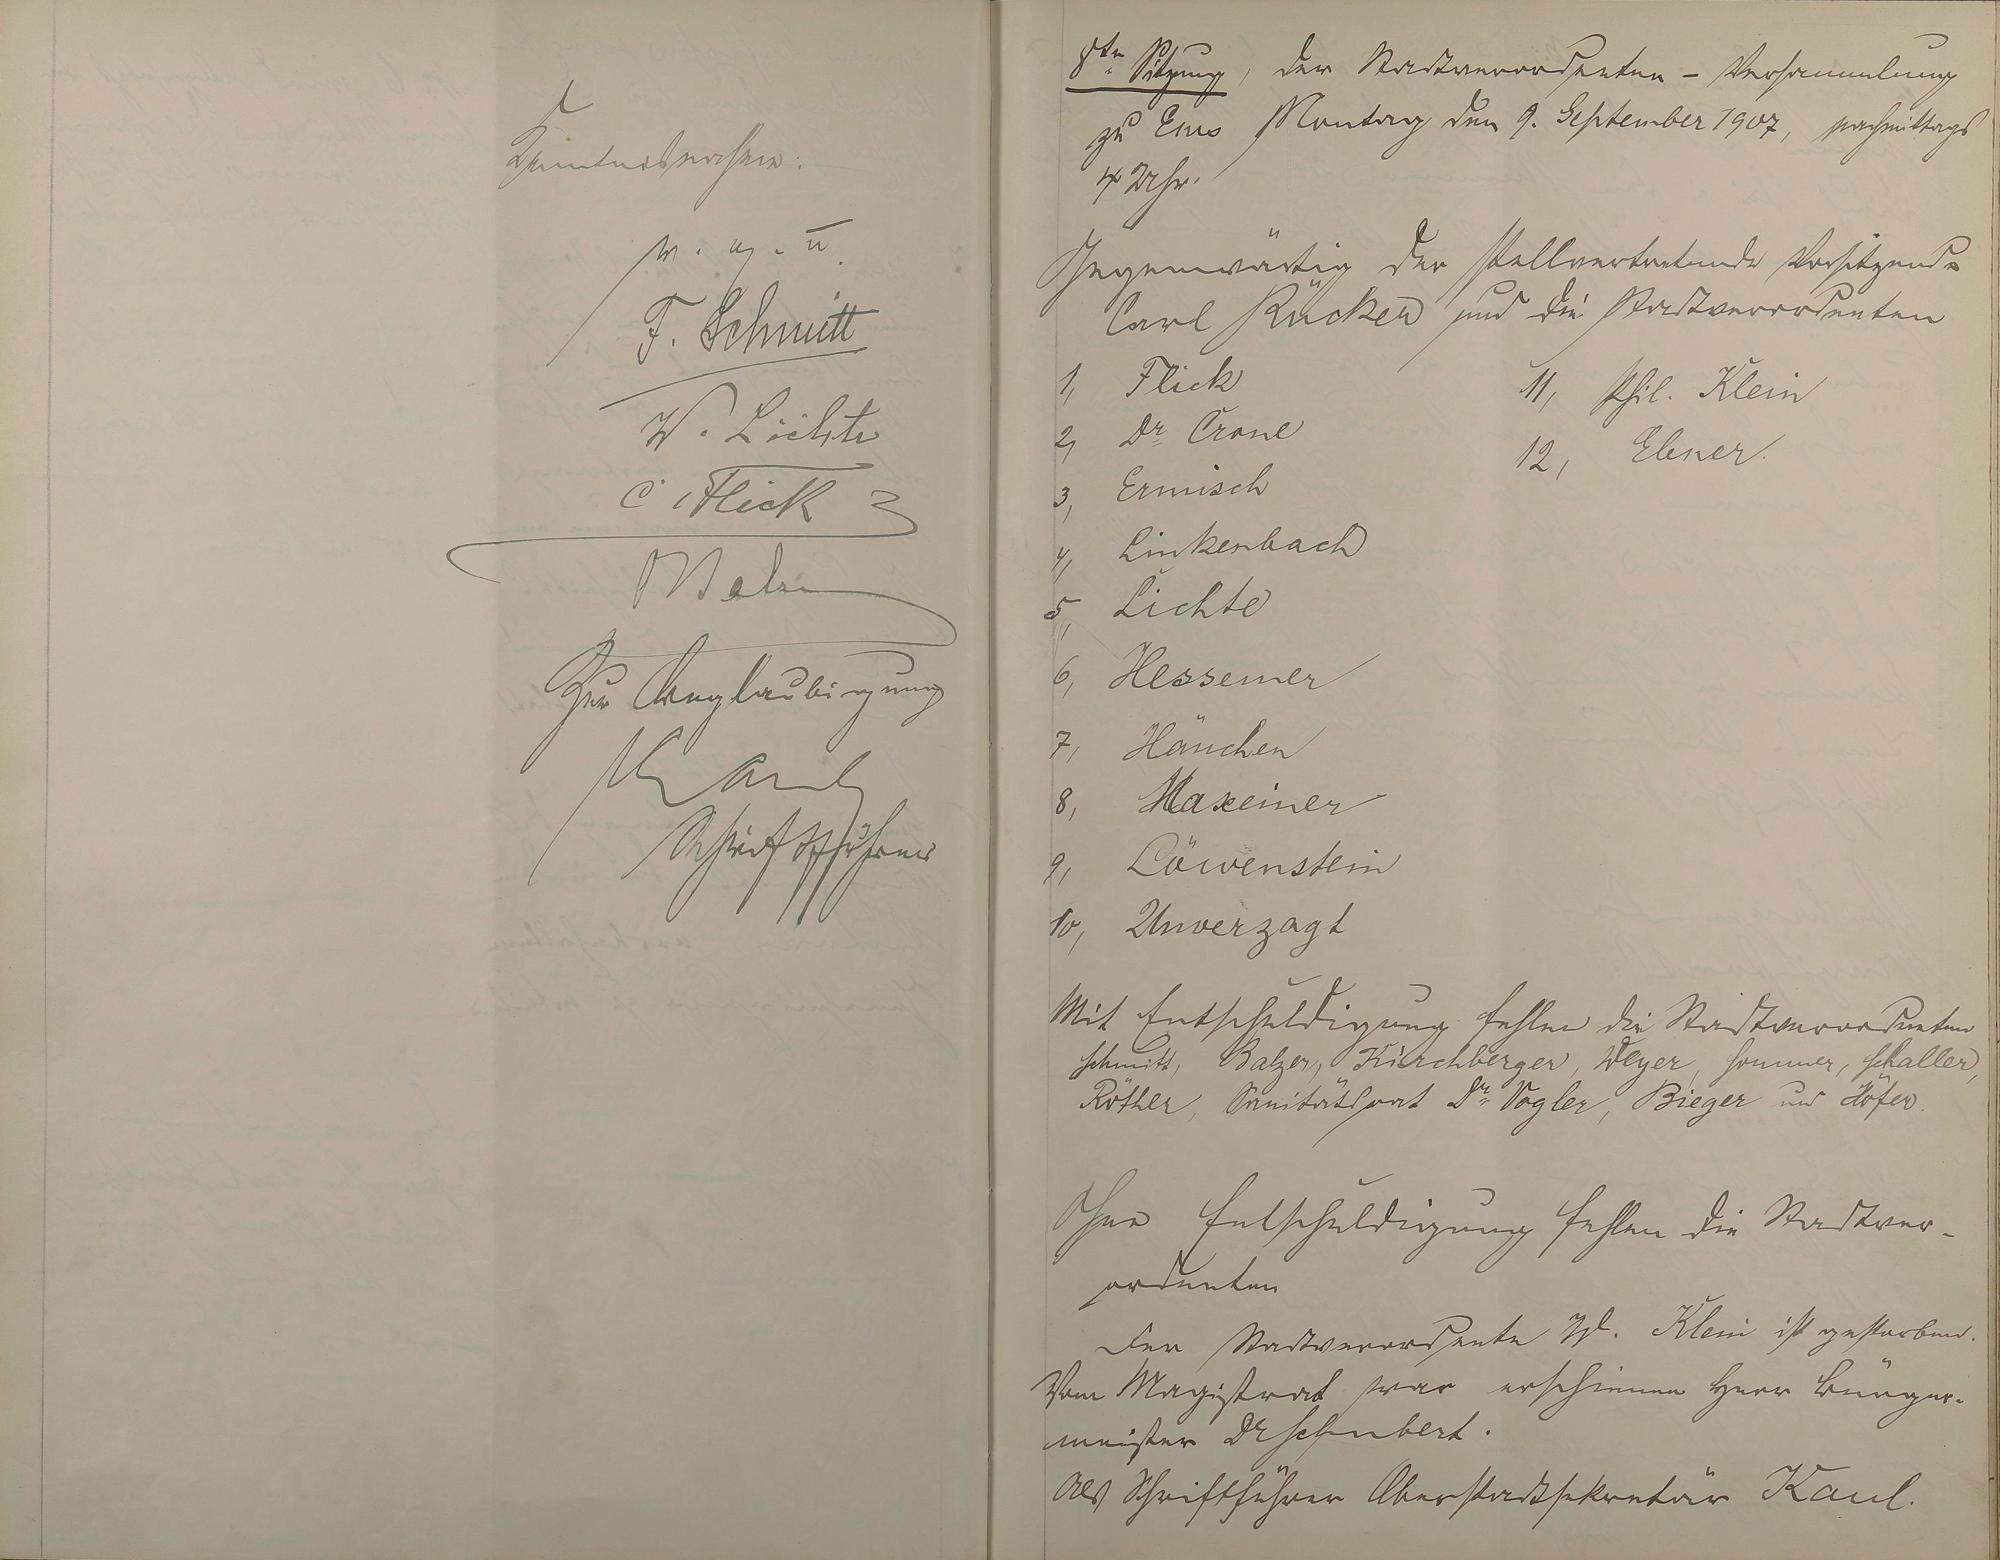 Kenntnisnahme.
v. g. u.
F. Schmitt
W. Lichte
C. Flick
Balzer
Zur Beglaubigung
Kaul
Schriftführer
8te Sitzung, der Stadtverordneten-Versammlung
zu Ems Montag den 9. September 1907, nachmittags
4 Uhr.
Gegenwärtig der stellvertretende Vorsitzende
Carl Rücker und die Stadtverordneten
1, Flick
2, Dr. Crone
3, Ermisch
4, Linkenbach
5, Lichte
6, Hessemer
7, Häuchen
8, Maxeiner
9, Löwenstein
10, Unverzagt
11, Phil. Klein
12, Ebner.
Mit Entschuldigung fehlen die Stadtverordneten
Schmitt, Balzer, Kirchberger, Weyer, Sommer, Schaller,
Röther, Sanitätsrat Dr. Vogler, Bieger und Höfer.
Ohne Entschuldigung fehlen die Stadtver-
ordneten
Der Stadtverordnete Klein ist gestorben.
Vom Magistrat war erschienen Herr Bürger-
meister Dr Schubert.
Als Schriftführer Oberstadtsekretär Kaul.